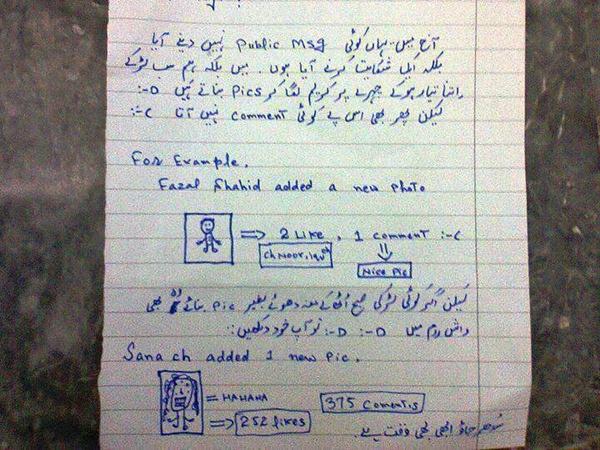 آج میں یہاں کوئی Public Msg نہیں دینے آیا
بلکہ ایک شکایت کرنے آیا ہوں. میں بلکہ ہم سب لڑکے
اتنا تیار ہو کے چہرے پر کریم لگا کر Pics بناتے ہیں :-D
لیکن پھر بھی اس پے کوئی comment نہیں آتا :-C
For Example.
Fazal Shahid added a new Photo
⇒ 2 Like, 1 comment :-C
Ch Noor,
Nice Pic
لیکن اگر کوئی لڑکی صبح اٹھ کے منہ دھوئے بغیر Pic بنائے وہ بھی
واش روم میں :-D :-D تو آپ خود دیکھیں::
Sana ch added 1 new Pic.
= HAHAHA
375 Coments
⇒ 252 likes
سدھر جاؤ ابھی بھی وقت ہے.